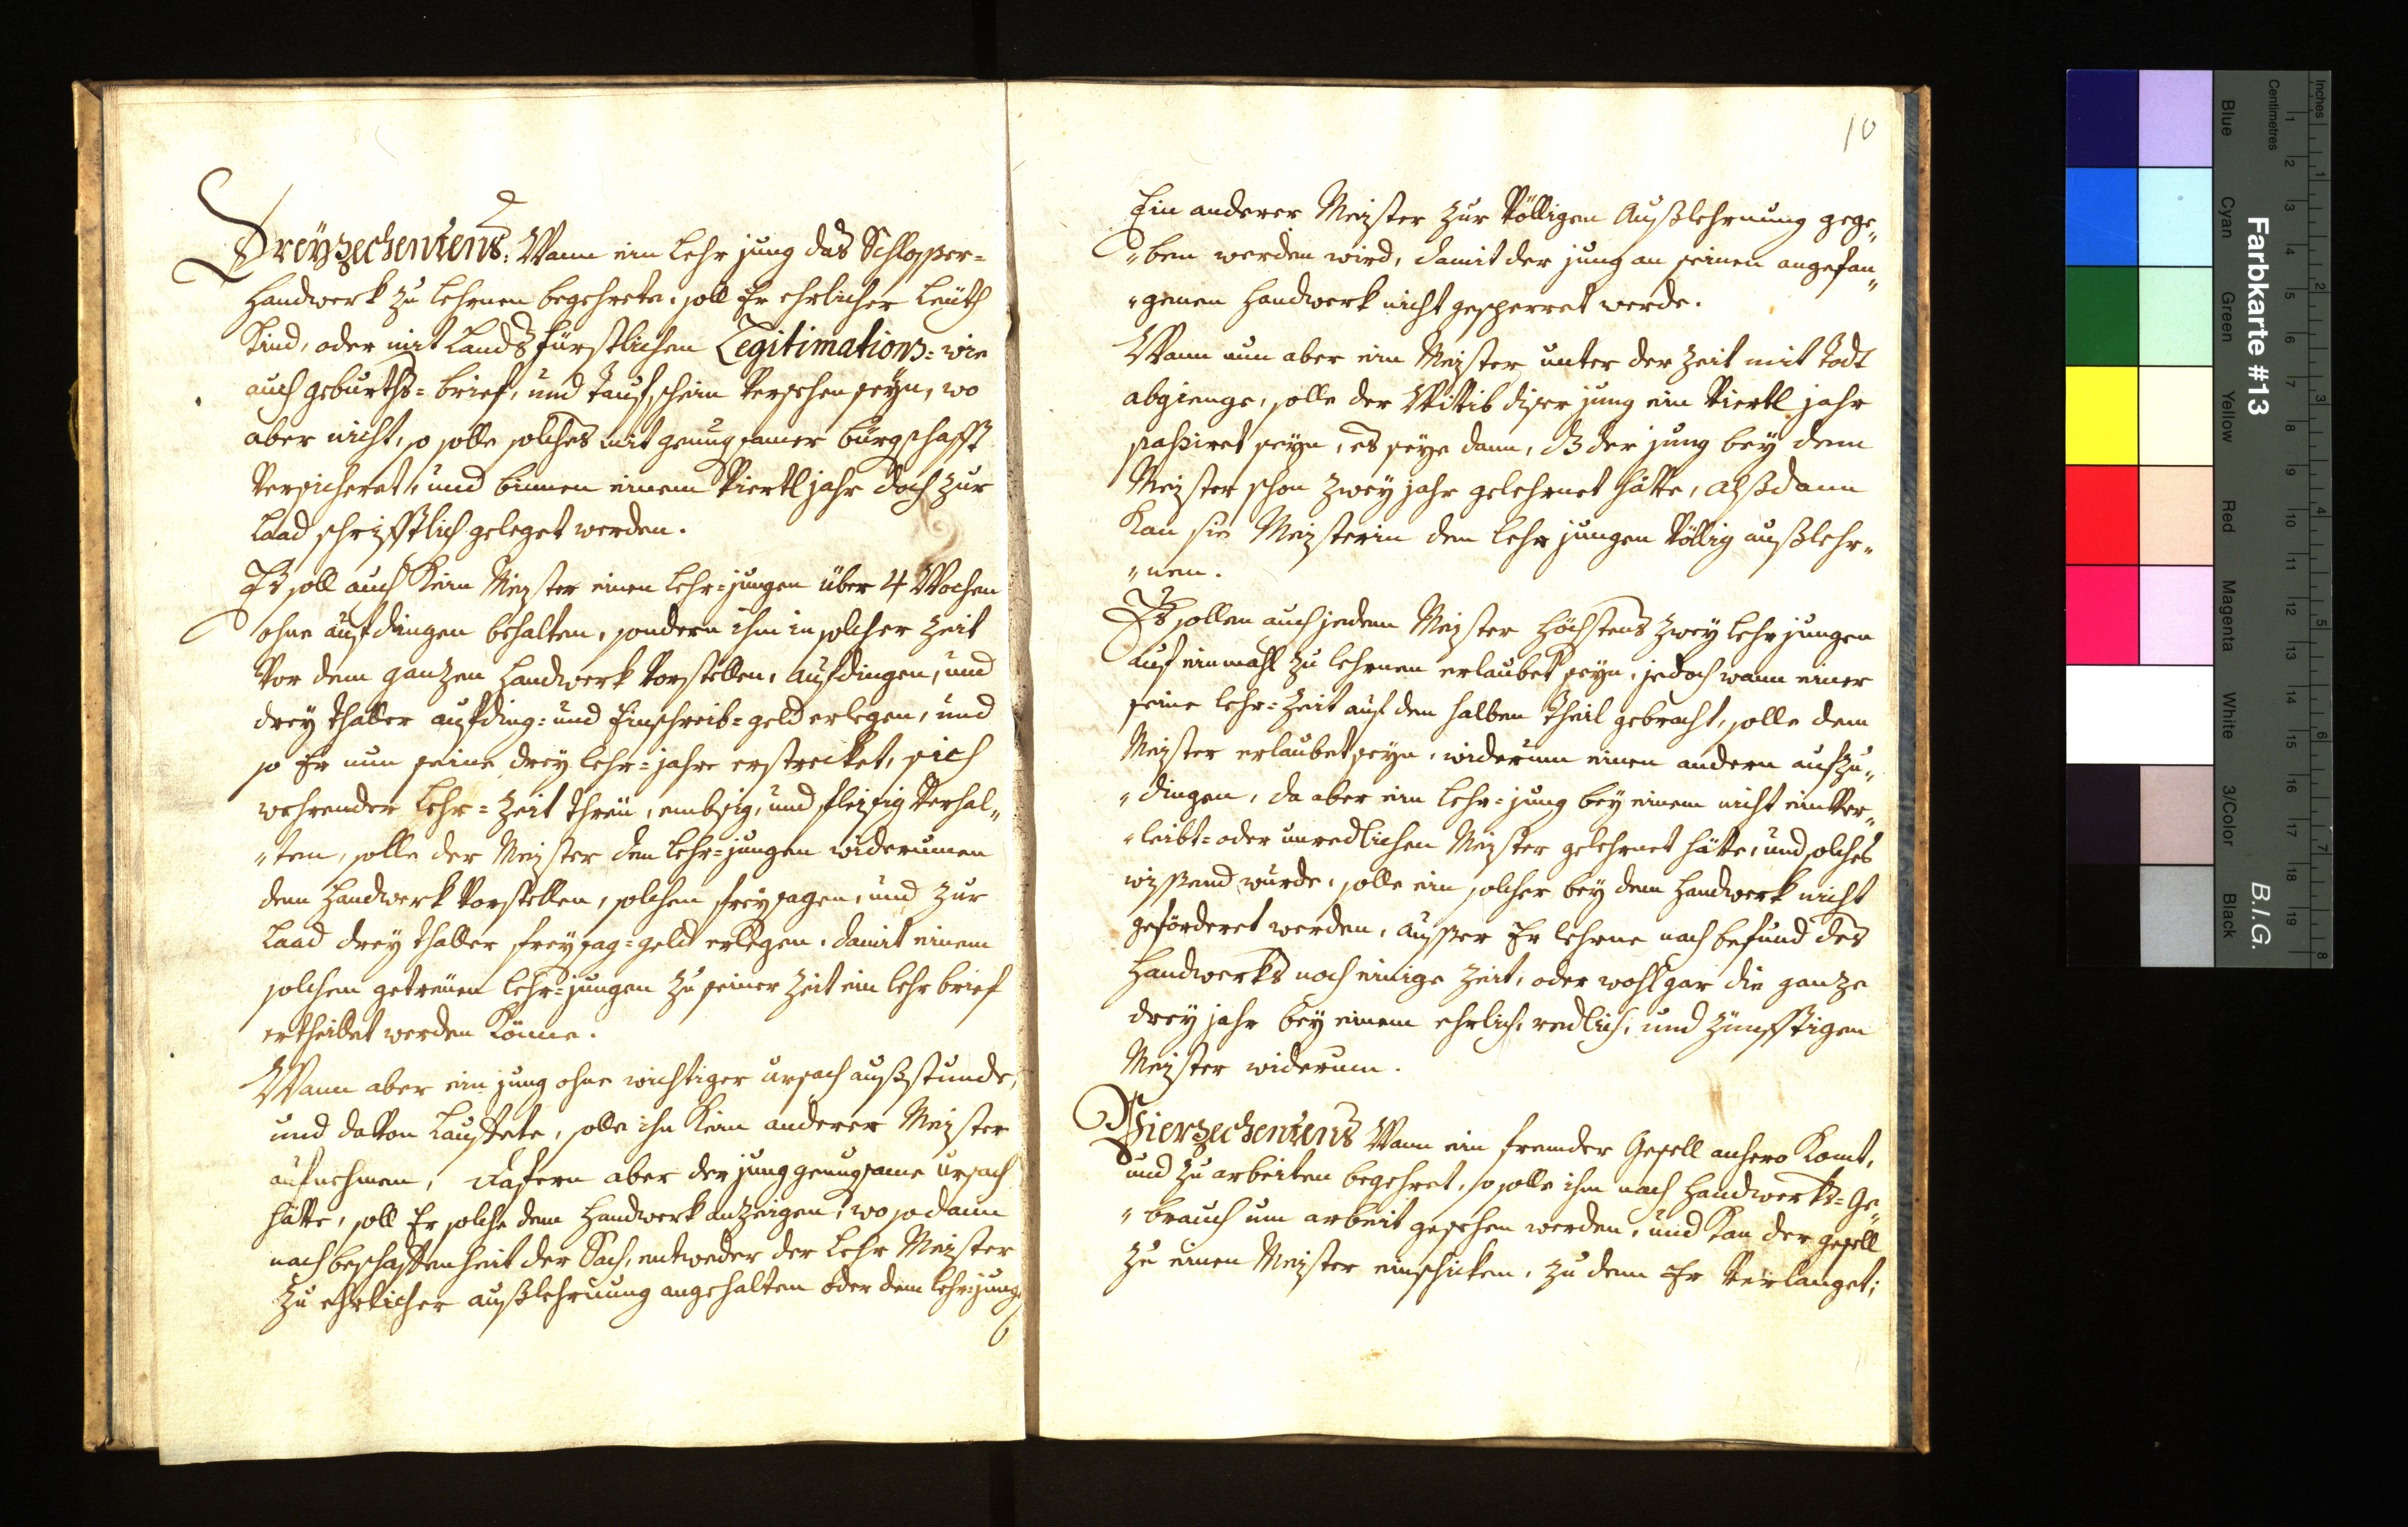 Dreÿzechentens: Wann ein lehr jung das Schlosser=
handwerk zu lehrnen begehrete, soll Er ehrlicher leüth
Kind, oder mit Landsfürstlichen Legitimations= wie
auch geburths=brief, und taufschein versehen seÿn, wo
aber nicht, so solle solches mit genugsamer bürgschafft
versicheret, und binnen einem Viertl jahr doch zur
Laad schrifftlich geleget werden.
Es soll auch Kein Meister einen lehr=jungen über 4 Wochen
ohne aufdingen behalten, sondern ihn in solcher zeit
Vor dem ganzen handwerk Vorstellen, aufdingen, und
dreÿ thaller aufding= und Einschreib=geld erlegen, und
so Er nun seine dreÿ lehr=jahre erstrecket, sich
wehrender lehr=zeit threü, embsig, und fleissig Verhal„
„ten, solle der Meister den lehr=jungen widerumen
dem handwerk Vorstellen, solchen freÿsagen, und zur
Laad dreÿ thaller freÿsag=geld erlegen, damit einem
solchem getreüen lehr=jungen zu seiner zeit ein lehr brief
ertheilet werden Könne.
Wann aber ein jung ohne wichtiger ursach außstunde,
und davon lauffete, solle ihn Kein anderer Meister
aufnehmen, dafern aber der jung genugsame ursach
hätte, soll Er solche dem handwerk anzeigen, wo sodann
nach beschaffenheit der Sach, entweder der lehr Meister
zu ehrlicher außlehrnung angehalten oder dem lehr=jung
10
Ein anderer Meister zur Völligen Außlehrnung gege„
„ben werden wird, damit der jung an seinen angefan„
„genen handwerk nicht gesperret werde.
Wann nun aber ein Meister unter der zeit mit todt
abgienge, solle der Wittib diser jung ein Viertl jahr
passiret seÿn, es seÿe dann, dz der jung beÿ dem
Meister schon zweÿ jahr gelehrnet hätte, alßdann
Kan sie Meisterin den lehr jungen Völlig außlehr„
„nen.
Es sollen auch jedem Meister höchstens zweÿ lehr jungen
auf einmahl zu lehrnen erlaubet seÿn, jedoch wann einer
seine lehr=zeit auf den halben theil gebracht, solle dem
Meister erlaubet seÿn, widerum einen andern aufzu„
„dingen, da aber ein lehr=jung beÿ einem nicht einVer„
„leibt= oder unredlichen Meister gelehrnet hätte, und solches
wissend wurde, solle ein solcher beÿ dem handwerk nicht
geförderet werden, ausser Er lehrne nach befund des
handwerks noch einige zeit, oder wohl gar die ganze
dreÿ jahr beÿ einem ehrlich, redlich, und zünfftigen
Meister widerum.
Vierzechentens Wann ein fremder Gesell anhero Komt,
und zu arbeiten begehret, so solle ihm nach handwerks=Ge„
„brauch um arbeit gesehen werden, und Kan der gesell
zu einen Meister einschicken, zu dem Er Verlanget;
Farbkarte #13
B.I.G.
Inches 1 2 3 4 5 6 7 8
Centimetres 1 2 3 4 5 6 7 8 9 10 11 12 13 14 15 16 17 18 19
Blue Cyan Green Yellow Red Magenta White 3/Color Black